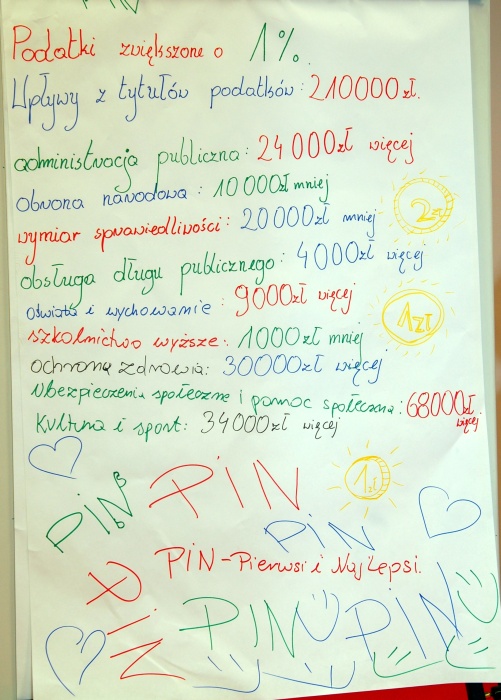 PIN
Podatki zwiększone o 1%.
Wpływy z tytułów podatków: 210000zł.
administracja publiczna: 24000zł więcej
obrona narodowa: 10000zł mniej
wymiar sprawiedliwości: 20000zł mniej
obsługa długu publicznego: 4000zł więcej
oświata i wychowanie: 9000zł więcej
szkolnictwo wyższe: 1000zł mniej
ochrona zdrowia: 30000zł więcej
Ubezpieczenia społeczne i pomoc społeczna: 68000zł więcej
Kultura i sport: 34000zł więcej
2zł
1zł
1zł
PIN
PIN
PIN
PIN-Pierwsi i Najlepsi.
PIN
PIN
PIN